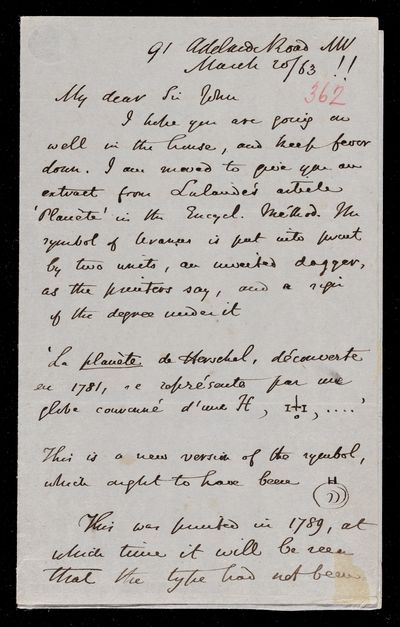 91 Adelaide Road NW
March 20/63 !!
362
My dear Sir John
I hope you are going on
well in the house, and keep fever
down. I am moved to give you an
extract from Lalande's article
'Planète' in the Encycl. Méthod. The
symbol of Uranus is put into print
by two units, an inverted dagger,
as the printers say, and a sign
of the degree under it
'La planète de Herschel, découverte
en 1781, se représente par une
globe couronné d'une H, , ....'
This is a new version of the symbol,
which ought to have been
This was printed in 1789, at
which time it will be seen
that the type had not been